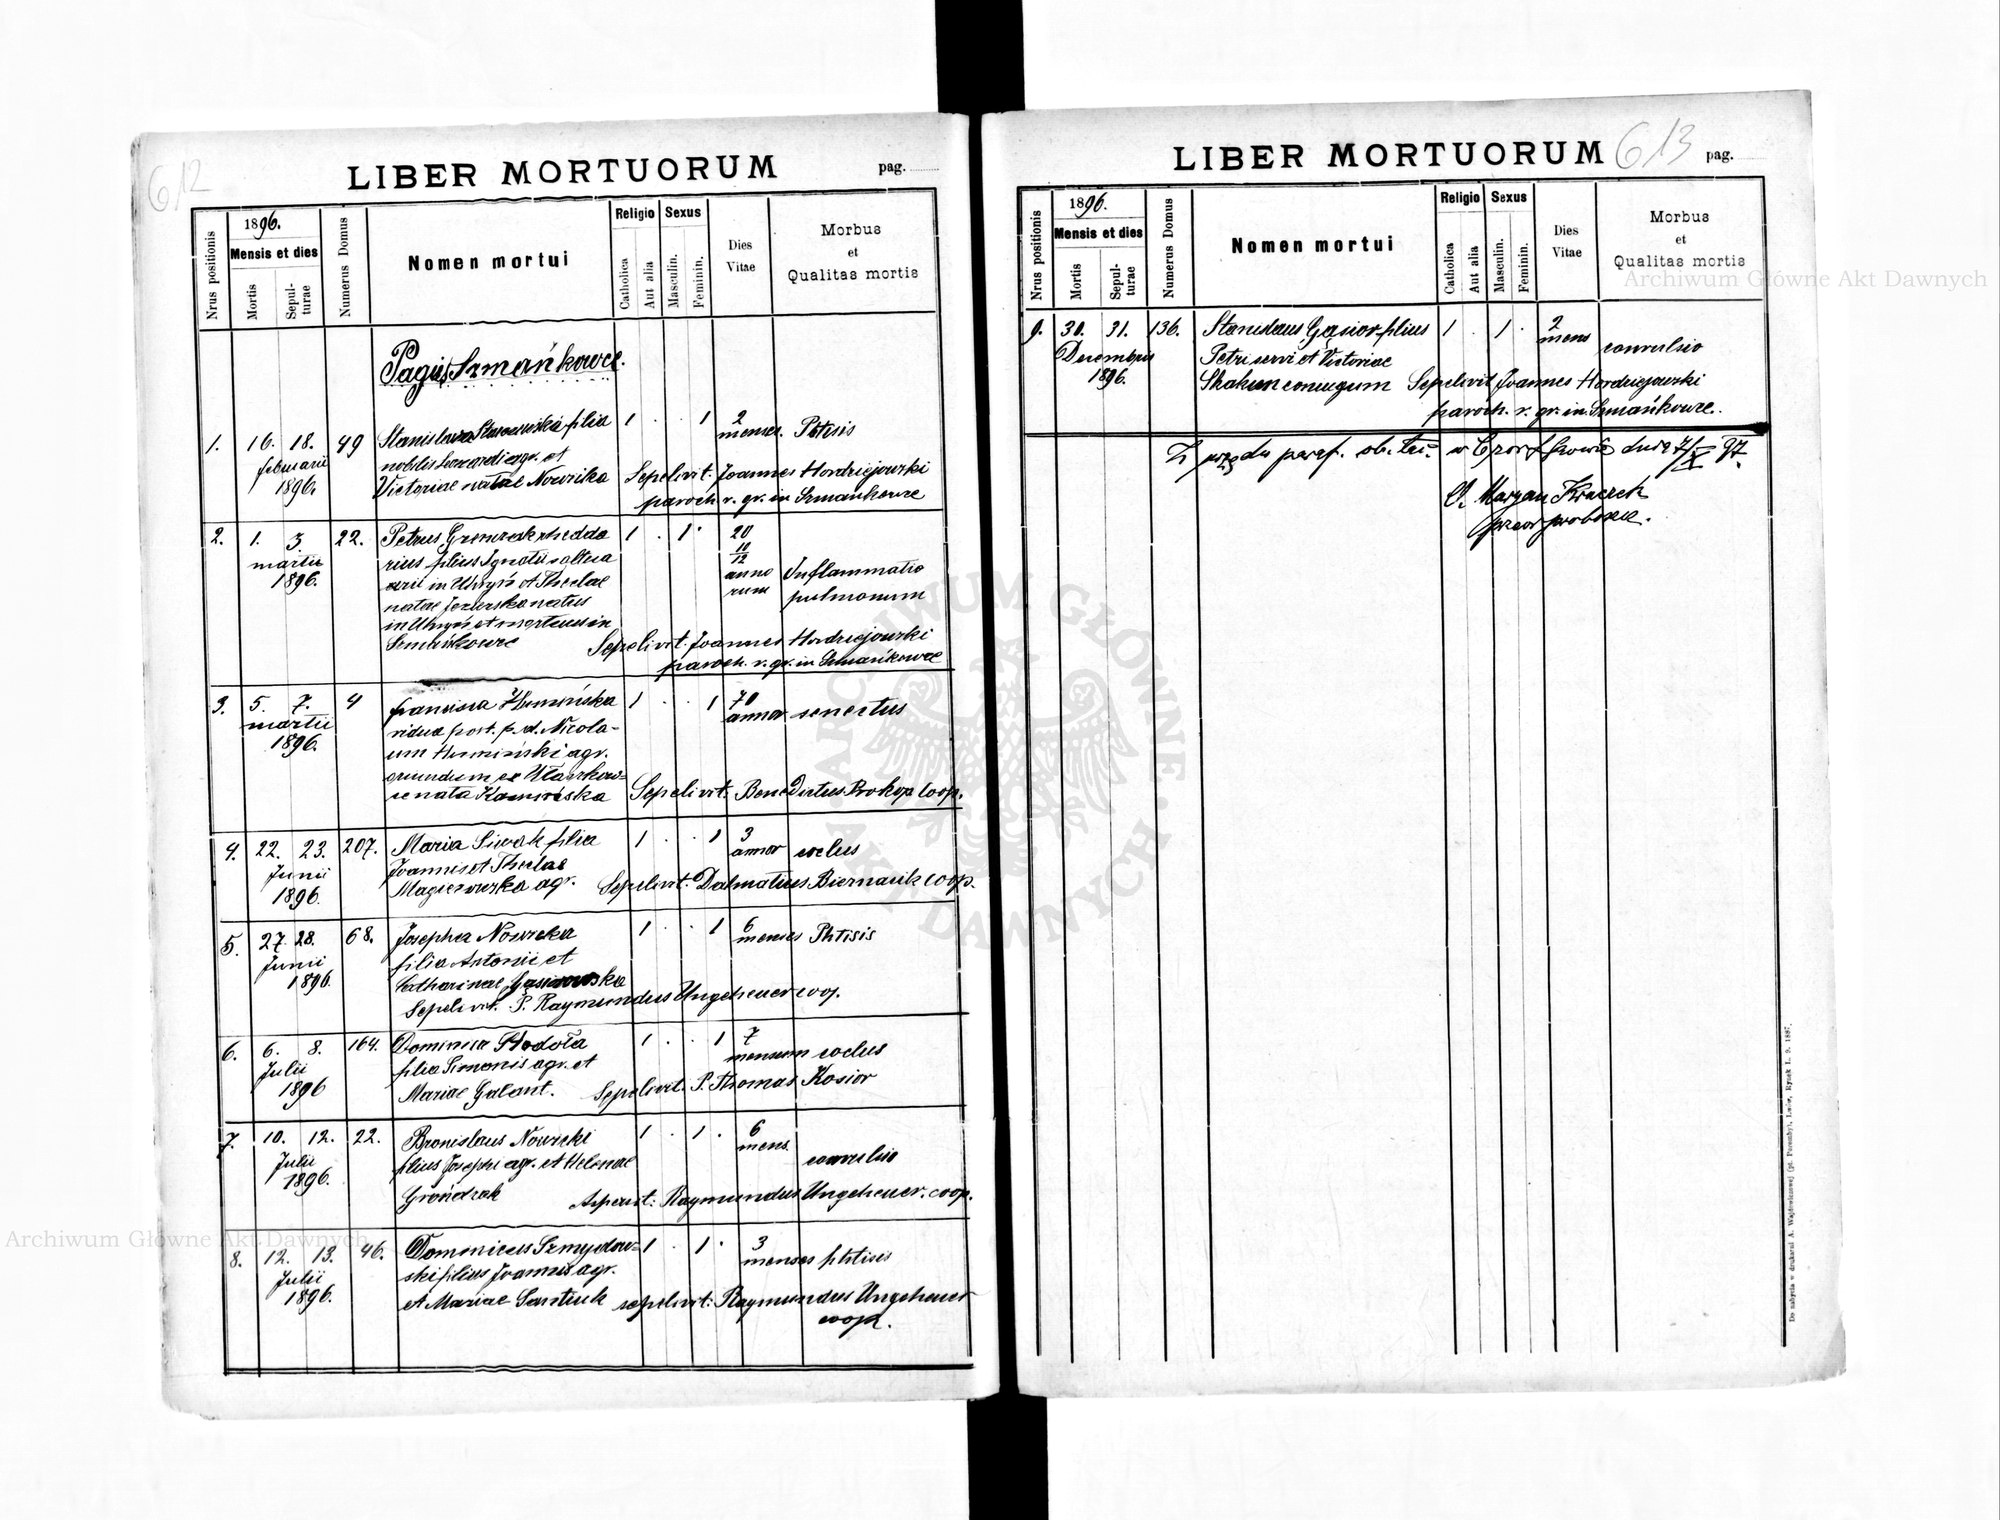 612
LIBER MORTUORUM
pag.
Nrus positionis
1896.
Mensis et dies
Mortis
Sepulturae
Numerus Domus
Nomen mortui
Religio
Catholica
Aut alia
Sexus
Masculin.
Feminin.
Dies Vitae
Morbus
et
Qualitas mortis
Pagus Szmańkowce.
1. 16. 18. 49 Stanislava filia 1 . . 1 2
februarii menses. Ptisis
1896.
nobilis agr. et
Victoriae natae Nowicka Sepelivit: Joannes Hordziejowski
paroch. r. gr. in Szmańkowce
2. 1. 3. 22. Petrus rhedda 1 . 1 . 20
martii rius filius Ignatii saltua 10/12
1896. arii in Uhryń et Theclae anno Inflammatio
natae natus rum pulmonum
in Uhryń et mortuus in
Szmańkowce Sepelivit: Joannes Hordziejowski
paroch. r. gr. in Szmańkowce
3. 5. 7. 4 Francisca Humińska 1 . . 1 70
martii vidua post. p. d. Nicola- annor senectus
1896. um Humiński agr.
oriundum ex Ułaszkow-
ce nata Sepelivit: Benedictus Prokop coop.
4. 22. 23. 207. Maria Siwak filia 1 . . 1 3
Junii Joannis et Theclae annor coclus
1896. agr. Sepelivit: Dalmatius Biernacik coop.
5. 27. 28. 68. Josepha Nowicka 1 . . 1 6
Junii filia Antonii et menses Phtisis
1896. Catharinae Gąsiorowska
Sepelivit. P. Raymundus Ungeheuer coop.
6. 6. 8. 164. Dominica Stodoła 1 . . 1 7
Julii filia Simonis agr. et mensum coclus
1896 Mariae Galant. Sepelivit: P. Thomas Kosior
7. 10. 12. 22. Bronislaus Nowicki 1 . 1 . 6
Julii filius Josephi agr. et Helenae mens. convulsio
1896. Grońdzak Raymundus Ungeheuer. coop.
8. 12. 13. 46. Dominicus Szmydow- 1 . 1 . 3
Julii ski filius Joannis agr. menses phtisis
1896. et Mariae sepelivit: Raymundus Ungeheuer
coop.
613
LIBER MORTUORUM
pag.
Nrus positionis
1896.
Mensis et dies
Mortis
Sepulturae
Numerus Domus
Nomen mortui
Religio
Catholica
Aut alia
Sexus
Masculin.
Feminin.
Dies Vitae
Morbus
et
Qualitas mortis
9. 30. 31. 136. Stanislaus Gąsior filius 1 . 1 . 2
Decembris Petri servi et Victoriae mens convulsio
1896. coniugum Sepelivit Joannes Hordziejowski
paroch. r. gr. in Szmańkowce.
Z urzędu paraf. ob. łac. w Czortkowie dnia 7/X 97.
O. Maryan Kraczek
przeor proboszcz.
Do nabycia w drukarni A. Wajdowiczowej (pt. Pocemby), Lwów, Rynek L. 9. 1887.
Archiwum Główne Akt Dawnych
Archiwum Główne Akt Dawnych
ARCHIWUM GŁÓWNE AKT DAWNYCH